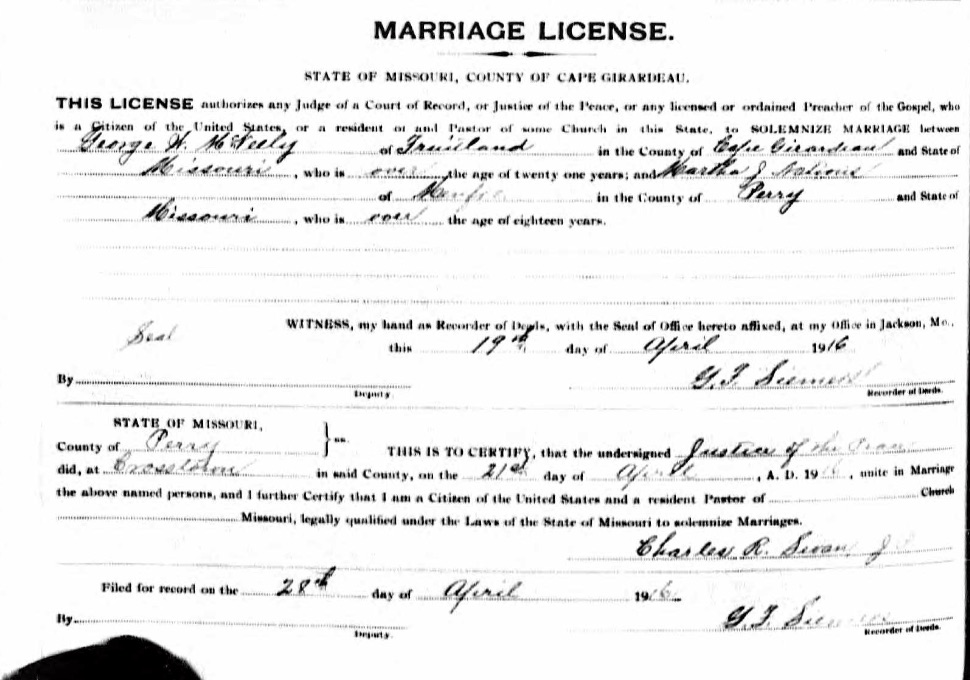 MARRIAGE LICENSE.
STATE OF MISSOURI, COUNTY OF CAPE GIRARDEAU.
THIS LICENSE authorizes any Judge of a Court of Record, or Justice of the Peace, or any licensed or ordained Preacher of the Gospel, who
is a Citizen of the United States, or a resident of and Pastor of some Church in this State, to SOLEMNIZE MARRIAGE between
George H. McNeely of Fruitland in the County of Cape Girardeau and State of
Missouri, who is over the age of twenty one years; and Martha J Nations
of in the County of Perry and State of
Missouri, who is over the age of eighteen years.
Seal WITNESS, my hand as Recorder of Deeds, with the Seal of Office hereto affixed, at my Office in Jackson, Mo.,
this 19th day of April 1916
By G. F. Siemers
Deputy. Recorder of Deeds.
STATE OF MISSOURI,
County of Perry } ss. THIS IS TO CERTIFY, that the undersigned Justice of the Peace
did, at Crosstown in said County, on the 21st day of April, A. D. 1916, unite in Marriage
the above named persons, and I further Certify that I am a Citizen of the United States and a resident Pastor of Church
Missouri, legally qualified under the Laws of the State of Missouri to solemnize Marriages.
Charles R. Swan J
Filed for record on the 28th day of April 1916.
By G. F. Siemers
Deputy. Recorder of Deeds.